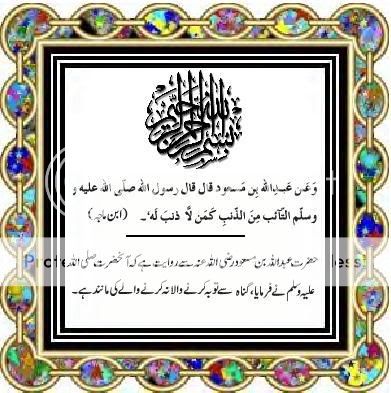 بسم الله الرحمن الرحيم
وَعَن عَبدِاللّٰه بِن مَسعود قال قال رسول اللّٰه صلّى اللّٰه عليه و
وسلّم التآئب مِنَ الذّنبِ كمَن لَّا ذنبَ لَه‘۔ (ابن ماجہ)
حضرت عبداللہ بن مسعود رضی اللہ عنہ سے روایت ہے کہ آنحضرت صلی اللہ
علیہ وسلم نے فرمایا، گناہ سے توبہ کرنے والا نہ کرنے والے کی مانند ہے۔